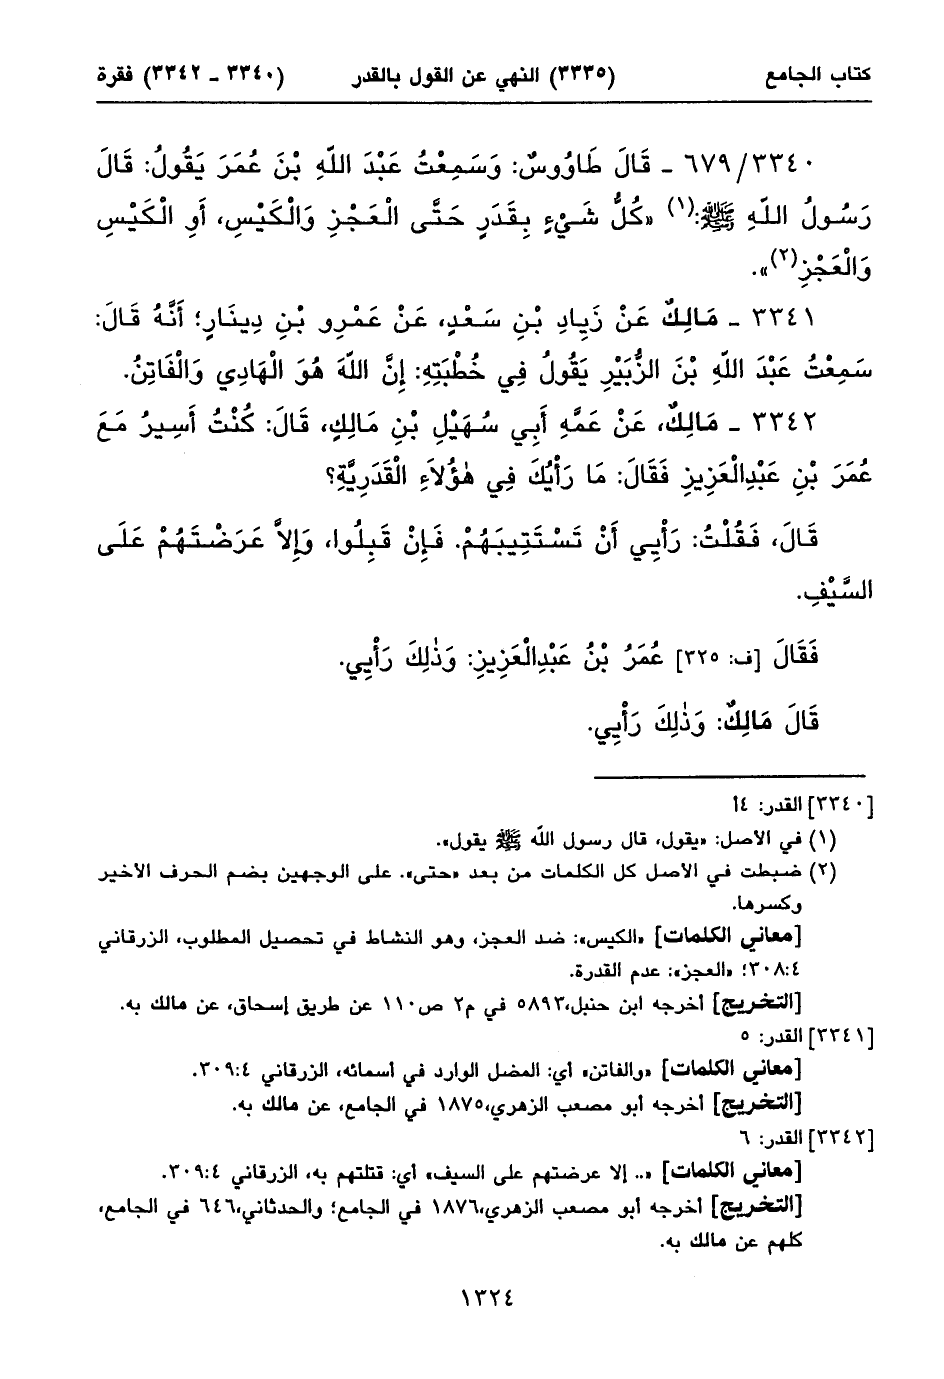 كتاب الجامع (٣٣٣٥) النهي عن القول بالقدر (٣٣٤٠ ـ ٣٣٤٢) فقرة
٦٧٩/٣٣٤٠ ـ قَالَ طَاوُوسٌ: وَسَمِعْتُ عَبْدَ اللّهِ بْنَ عُمَرَ يَقُولُ: قَالَ
رَسُولُ اللّهِ ﷺ:(١) «كُلُّ شَيْءٍ بِقَدَرٍ حَتَّى الْعَجْزِ وَالْكَيْسِ، أَوِ الْكَيْسِ
وَالْعَجْزِ(٢)».
٣٣٤١ ـ مَالِكٌ عَنْ زِيَادِ بْنِ سَعْدٍ، عَنْ عَمْرِو بْنِ دِينَارٍ؛ أَنَّهُ قَالَ:
سَمِعْتُ عَبْدَ اللّهِ بْنَ الزُّبَيْرِ يَقُولُ فِي خُطْبَتِهِ: إِنَّ اللّهَ هُوَ الْهَادِي وَالْفَاتِنُ.
٣٣٤٢ ـ مَالِكٌ، عَنْ عَمِّهِ أَبِي سُهَيْلِ بْنِ مَالِكٍ، قَالَ: كُنْتُ أَسِيرُ مَعَ
عُمَرَ بْنِ عَبْدِالْعَزِيزِ فَقَالَ: مَا رَأْيُكَ فِي هٰؤُلاَءِ الْقَدَرِيَّةِ؟
قَالَ، فَقُلْتُ: رَأْيِي أَنْ تَسْتَتِيبَهُمْ. فَإِنْ قَبِلُوا، وَإِلاَّ عَرَضْتَهُمْ عَلَى
السَّيْفِ.
فَقَالَ [ف: ٣٢٥] عُمَرُ بْنُ عَبْدِالْعَزِيزِ: وَذٰلِكَ رَأْيِي.
قَالَ مَالِكٌ: وَذٰلِكَ رَأْيِي.
[٣٣٤٠] القدر: ٤أ
(١) في الأصل: «يقول، قال رسول اللّه ﷺ يقول».
(٢) ضبطت في الأصل كل الكلمات من بعد «حتى». على الوجهين بضم الحرف الأخير
وكسرها.
[معاني الكلمات] «الكيس»: ضد العجز، وهو النشاط في تحصيل المطلوب، الزرقاني
٣٠٨:٤؛ «العجز»: عدم القدرة.
[التخريج] أخرجه ابن حنبل،٥٨٩٣ في م٢ ص١١٠ عن طريق إسحاق، عن مالك به.
[٣٣٤١] القدر: ٥
[معاني الكلمات] «والفاتن» أي: المضل الوارد في أسمائه، الزرقاني ٣٠٩:٤.
[التخريج] أخرجه أبو مصعب الزهري،١٨٧٥ في الجامع، عن مالك به.
[٣٣٤٢] القدر: ٦
[معاني الكلمات] «.. إلا عرضتهم على السيف» أي: قتلتهم به، الزرقاني ٣٠٩:٤.
[التخريج] أخرجه أبو مصعب الزهري،١٨٧٦ في الجامع؛ والحدثاني،٦٤٦ في الجامع،
كلهم عن مالك به.
١٣٢٤